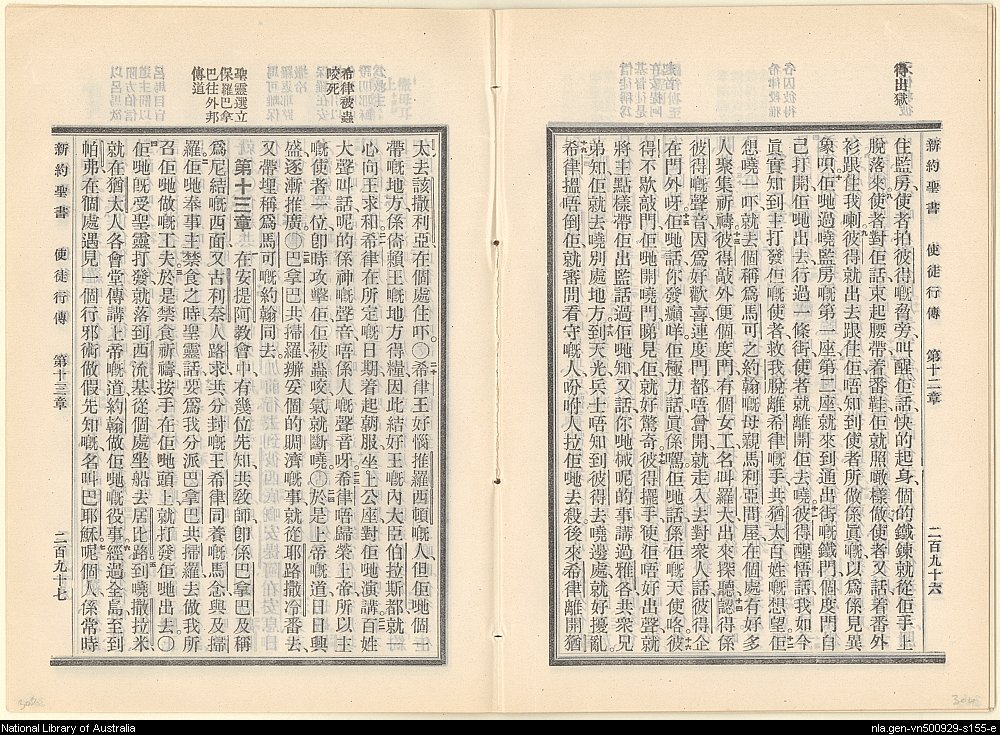 得出獄
新約聖書 使徒行傳 第十二章 二百九十六
住監房、使者拍彼得嘅脅旁、叫醒佢話、快的起身、個的鐵鍊就從佢手上
脫落來、使者對佢話、束起腰帶、着番鞋、佢就照噉樣做、使者又話、着番外
衫、跟住我喇、彼得就出去跟住佢、唔知到使者所做係眞嘅、以爲係見異
象呮、佢哋過曉監房嘅第一座第二座、就來到通出街嘅鐵門、個度門自
己打開、佢哋出去、行過一條街、使者就離開佢去曉、彼得醒悟話、我如今
眞實知到主打發佢嘅使者、救我脫離希律嘅手、共猶太百姓嘅想望、佢
想曉一吓、就去個稱爲馬可之約翰嘅母親馬利亞間屋、在個處有好多
人聚集祈禱、彼得敲外便個度門、有個女工、名叫羅大、出來探聽、認得係
彼得嘅聲音、因爲好歡喜、連度門都唔曾開、就走入去、對衆人話、彼得企
在門外呀、佢哋話、你發癲咩、佢極力話眞係噉、佢哋話係佢嘅天使咯、彼
得不歇敲門、佢哋開曉門、睇見佢、就好驚奇、彼得擺手、使佢唔好出聲、就
將主點樣帶佢出監話過佢哋知、又話、你哋𠶧呢的事講過雅各共衆兄
弟知、佢就去曉別處地方、到天光、兵士唔知到彼得去曉邊處、就好擾亂、
希律搵唔倒佢、就審問看守嘅人、吩咐人拉佢哋去殺、後來希律離開猶
希律被蟲咬死
聖靈選立保羅巴拿巴往外邦傳道
太、去該撒利亞、在個處住吓。希律王好惱推羅西頓嘅人、但佢哋個一
帶嘅地方、係倚賴王嘅地方得糧、因此結好王嘅內大臣伯拉斯都、就一
心向王求和、希律在所定嘅日期、着起朝服、坐上公座、對佢哋演講、百姓
大聲叫話、呢的係神嘅聲音、唔係人嘅聲音呀、希律唔歸榮上帝、所以主
嘅使者一位、卽時攻擊佢、佢被蟲咬、氣就斷曉。於是上帝嘅道、日日興
盛、逐漸推廣。巴拿巴共掃羅、辦妥個的賙濟嘅事、就從耶路撒冷番去、
又帶埋稱爲馬可嘅約翰同去。
第十三章 在安提阿教會中、有幾位先知、共教師、卽係巴拿巴、及稱
爲尼結嘅西面、又古利奈人路求、共分封嘅王希律同養嘅馬念、與及掃
羅、佢哋奉事主、禁食之時、聖靈話、要爲我分派巴拿巴共掃羅、去做我所
召佢哋做嘅工夫、於是禁食祈禱、按手在佢哋頭上、就打發佢哋出去。
佢哋旣受聖靈打發、就落到西流基、從個處坐船去居比路、到曉撒拉米、
就在猶太人各會堂、傳講上帝嘅道、約翰做佢哋嘅役事、經過全島、至到
帕弗、在個處遇見一個行邪術、做假先知嘅、名叫巴耶穌、呢個人係常時
新約聖書 使徒行傳 第十三章 二百九十七
National Library of Australia
nla.gen-vn500929-s155-e